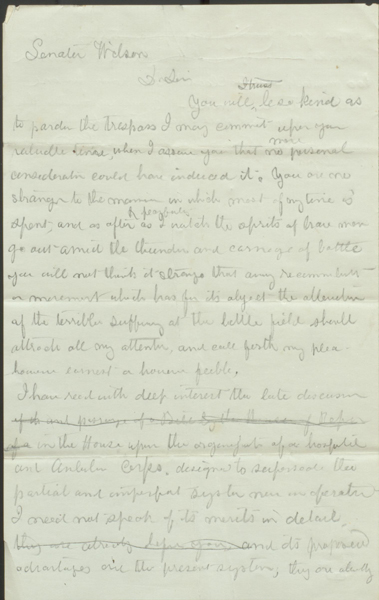 Senator Wilson
Dr Sir
I trust
You will, be so kind as
to pardon the trespass I may commit upon your
valuable time, when I assure you that no mere personal
consideration could have induced it. You are no
stranger to the manner in which most of my time is
spent, and as often as I watch the spirits of brave men
go out amid the thunder and carnage of battle
you will not think it strange that any recommendation
or movement which has for its object the alleviation
of the terrible suffering at the battle field should
attract all my attention, and call forth my plea
however earnest or however feeble.
I have read with deep interest the late discussion
of a Bill the House of
in the House upon the organization of a hospital
and Ambulance Corps, designed to supersede the
partial and imperfect system now in operation
I need not speak of its merits in detail
they are already before you and its proposed
advantages over the present system, they are already